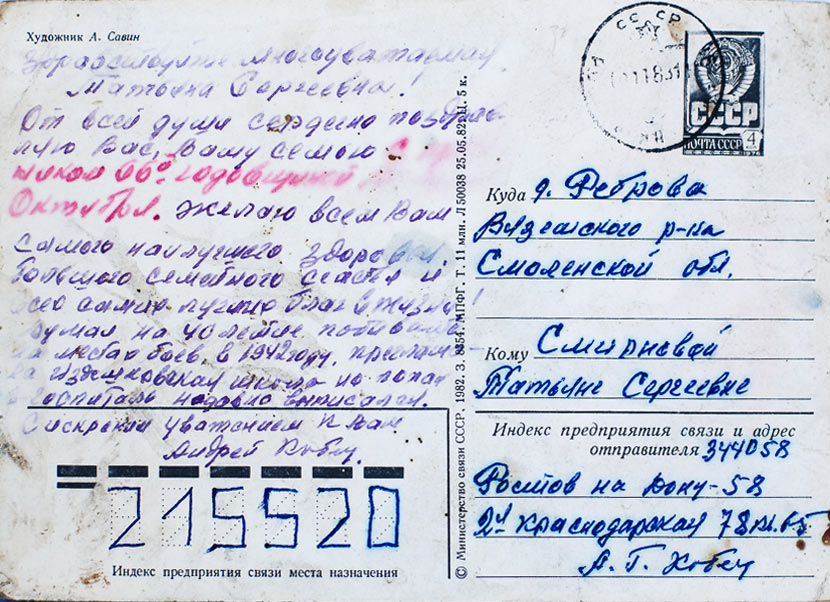 Художник А. Савин
Здравствуйте многоуважаемая
Татьяна Сергеевна!
От всей души сердечно поздрав
ляю Вас, Вашу семью с
66ой годовщиной
Октября. Желаю всем Вам
самого наилучшего здоровья,
большого семейного счастья и
всего самых лучших благ в жизни!
Думал на 40 летие побывать
на местах боев, в 1942 году,
Издешковская школа но попал
в госпиталь недавно выписался.
С искреним уважением к Вам
Андрей Кобец
215520
Индекс предприятия связи места назначения
© Министерство связи СССР. 1982. З. 8354. МПФГ. Т. 11 млн. Л 50038 25.05.82. Ц. 5 к.
СССР
СССР
ПОЧТА СССР
4
1976
Куда д. Реброва
Вяземского р-на
Смоленской обл.
Кому Смирновой
Татьяне Сергеевне
Индекс предприятия связи и адрес
отправителя 344058
Ростов на Дону-58
2я Краснодарская 78 кв. 65
А. Г. Кобец